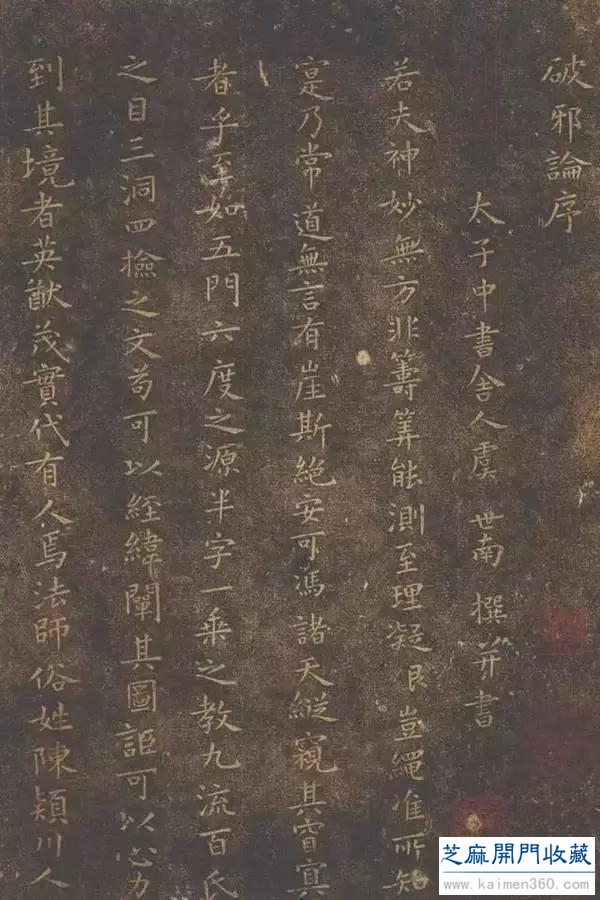 破邪論序
太子中書舍人虞世南撰并書
若夫神妙無方非籌筭能測至理凝邈豈繩准所知
寔乃常道無言有崖斯絕安可馮諸天縱窺其窅冥
者乎至如五門六度之源半字一乘之教九流百氏
之目三洞四檢之文苟可以經緯闡其圖詎可以心力
到其境者英猷茂實代有人焉法師俗姓陳潁川人
芝麻開門收藏
www.kaimen360.com